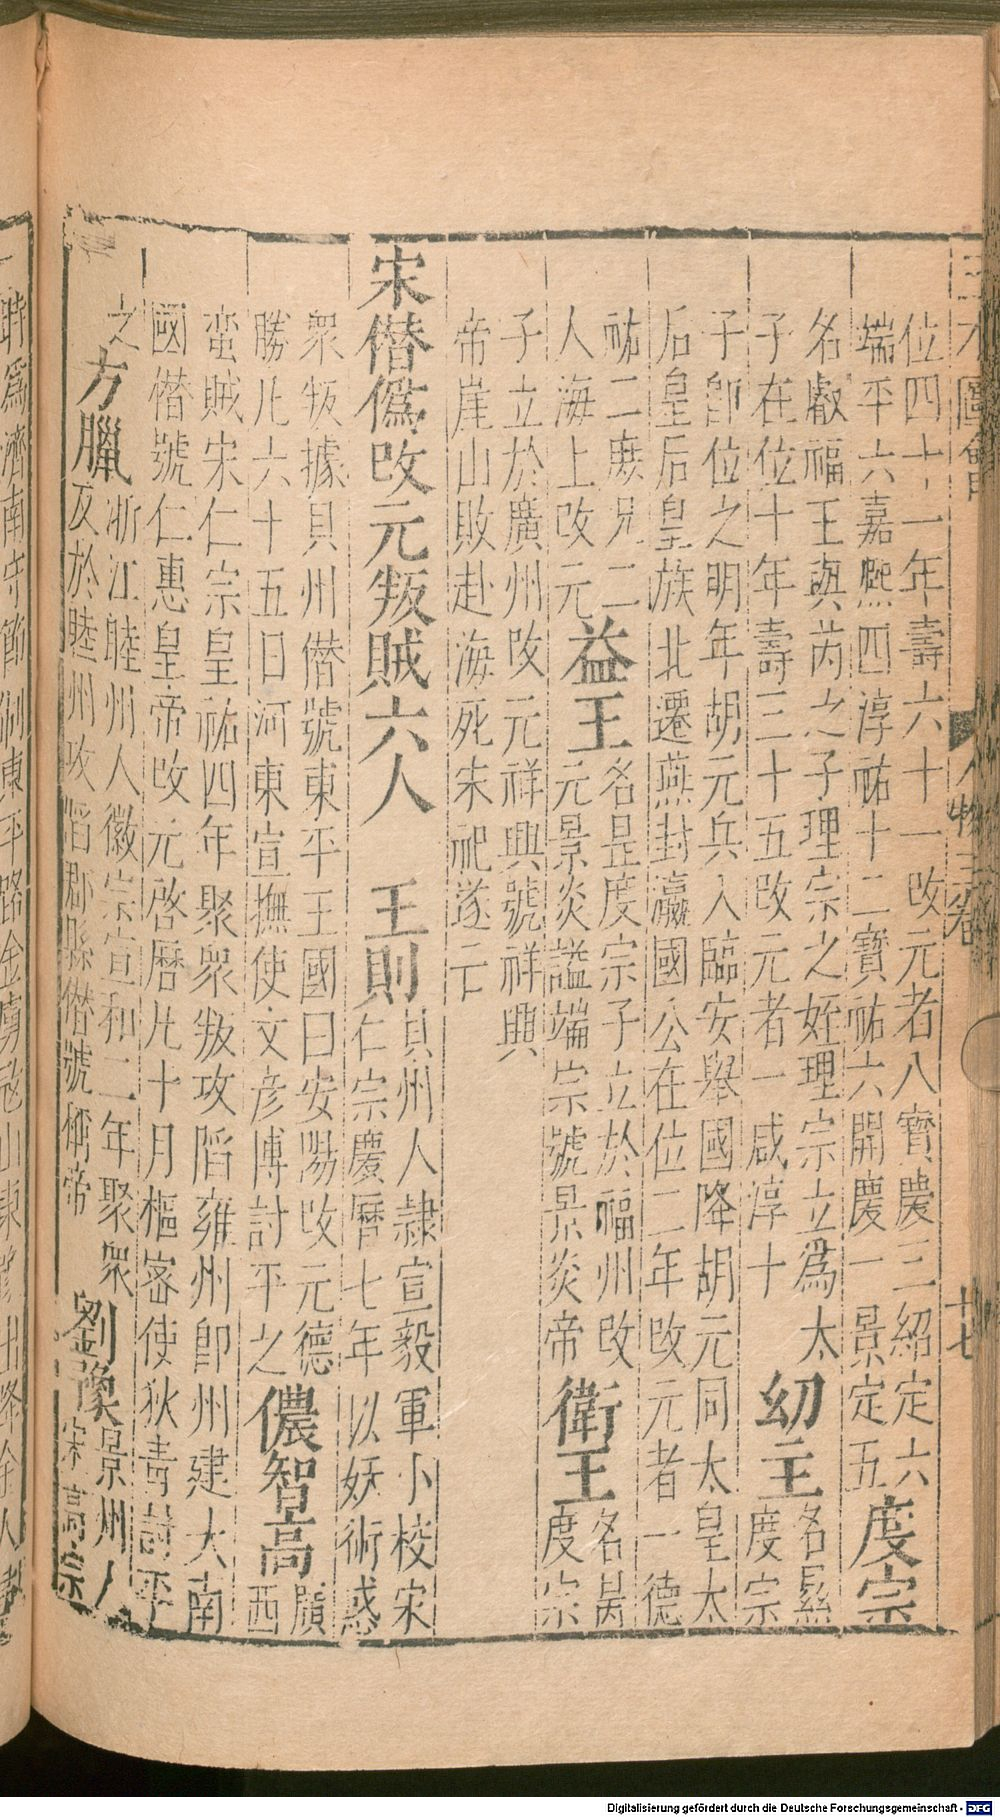 位四十一年壽六十一改元者八寶慶三紹定六
端平六嘉熈四淳祐十二寶祐六開慶一景定五
度宗
名叡福王與芮之子理宗之姪理宗立爲太
子在位十年壽三十五改元者一咸淳十
幼主
名㬎
度宗
子卽位之明年胡元兵入臨安舉國降胡元同太皇太
后皇后皇族北遷燕封瀛國公在位二年改元者一德
祐二庶兄二
人海上改元
益王
名昰度宗子立於福州改
元景炎謚端宗號景炎帝
衛王
名昺
度宗
子立於廣州改元祥興號祥興
帝崖山敗赴海死宋祀遂亡
宋僭僞改元叛賊六人 王則
貝州人隷宣毅軍小校宋
仁宗慶曆七年以妖術惑
衆叛據貝州僭號東平王國曰安陽改元德
勝凡六十五日河東宣撫使文彦博討平之
儂智高
廣
西
蛮賊宋仁宗皇祐四年聚衆叛攻陷雍州卽州建大南
國僭號仁惠皇帝改元啓曆凡十月樞宻使狄青討平
之
方臘
浙江睦州人徽宗宣和二年聚衆
反於睦州攻陷郡縣僭號稱帝
劉豫
景州人
宋高宗
三才圖會
人物三卷
十七
Digitalisierung gefördert durch die Deutsche Forschungsgemeinschaft - DFG